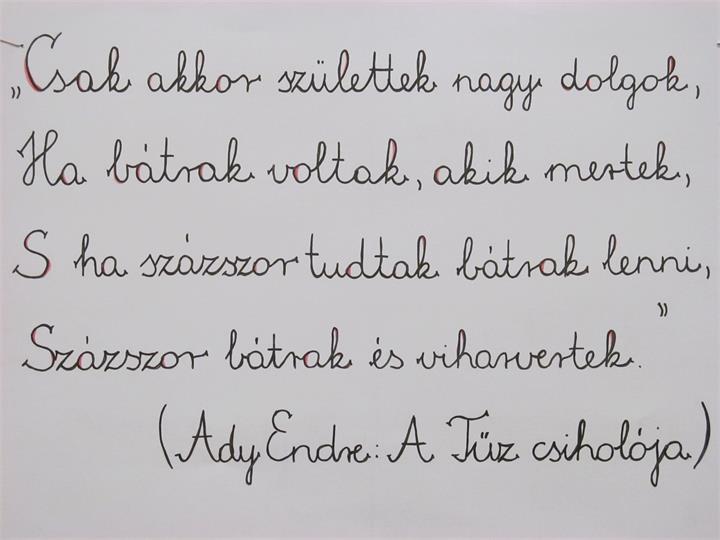 „Csak akkor születtek nagy dolgok,
Ha bátrak voltak, akik mertek,
S ha százszor tudtak bátrak lenni,
Százszor bátrak és viharvertek.”
(Ady Endre: A Tűz csiholója)